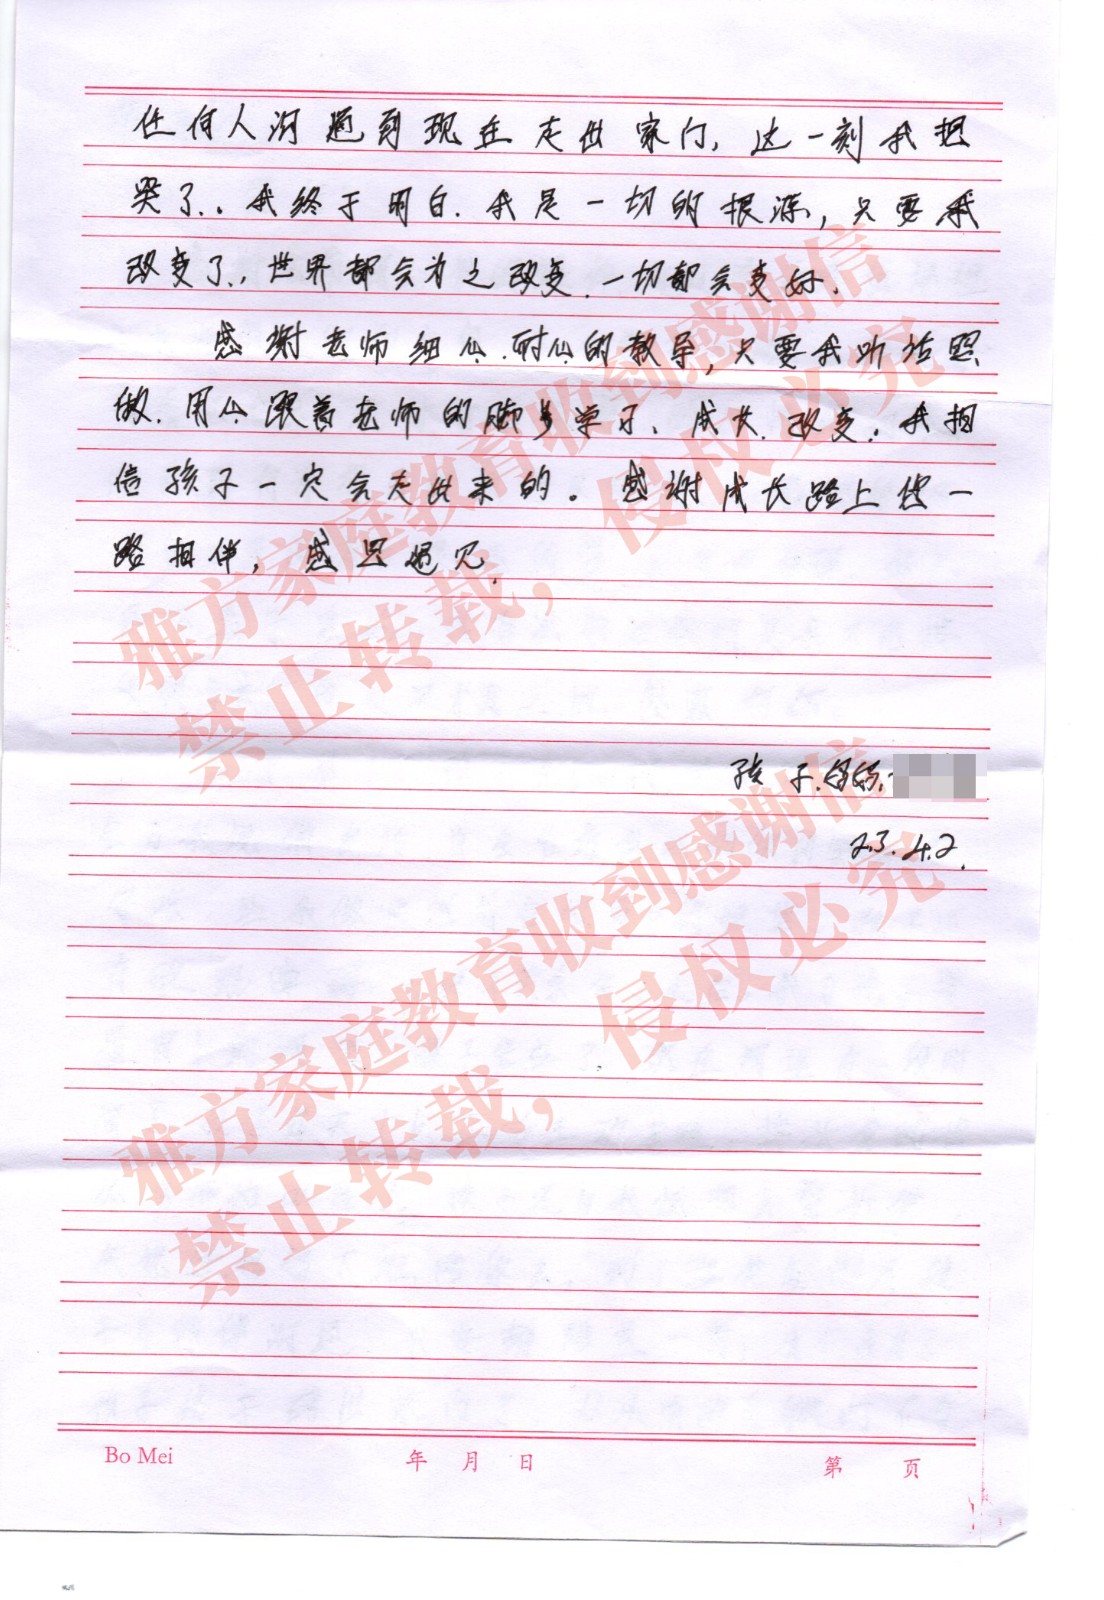 任何人沟通到现在走出家门，这一刻我想
哭了.。我终于明白.我是一切的根源，只要我
改变了.，世界都会为之改变.一切都会变好.
感谢老师细心.耐心的教导，只要我听话照
做.用心跟着老师的脚步学习、成长.改变.我相
信孩子一定会走出来的。感谢成长路上您一
路相伴，感恩遇见.
孩子妈妈:
23.4.2.
雅方家庭教育收到感谢信
禁止转载，侵权必究
雅方家庭教育收到感谢信
禁止转载，侵权必究
Bo Mei 年 月 日 第 页